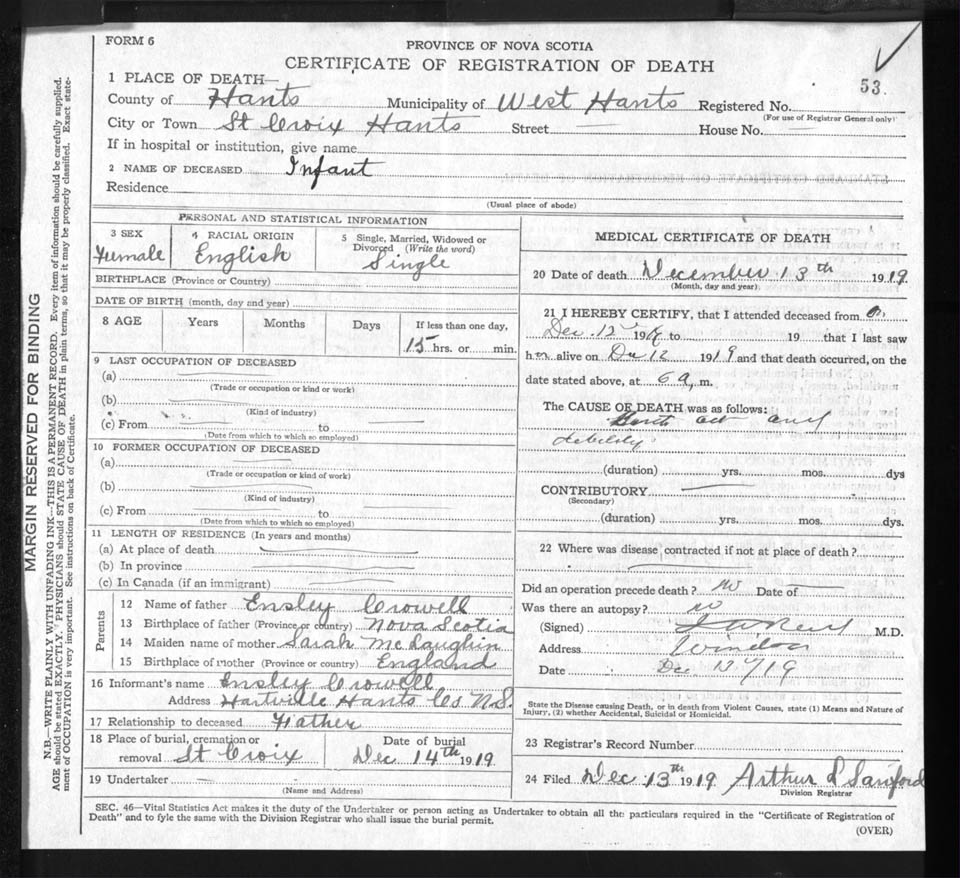 FORM 6
PROVINCE OF NOVA SCOTIA
CERTIFICATE OF REGISTRATION OF DEATH
53
1 PLACE OF DEATH—
County of Hants Municipality of West Hants Registered No.
(For use of Registrar General only)
City or Town St Croix Hants Street — House No. —
If in hospital or institution, give name
2 NAME OF DECEASED Infant
Residence
(Usual place of abode)
PERSONAL AND STATISTICAL INFORMATION
3 SEX Female
4 RACIAL ORIGIN English
5 Single, Married, Widowed or Divorced (Write the word) Single
BIRTHPLACE (Province or Country)
DATE OF BIRTH (month, day and year)
8 AGE Years Months Days If less than one day,
15 hrs. or min.
9 LAST OCCUPATION OF DECEASED
(a)
(Trade or occupation or kind or work)
(b)
(Kind of industry)
(c) From to
(Date from which to which so employed)
10 FORMER OCCUPATION OF DECEASED
(a)
(Trade or occupation or kind of work)
(b)
(Kind of industry)
(c) From to
(Date from which to which so employed)
11 LENGTH OF RESIDENCE (In years and months)
(a) At place of death
(b) In province
(c) In Canada (if an immigrant)
Parents
12 Name of father Ensley Crowell
13 Birthplace of father (Province or country) Nova Scotia
14 Maiden name of mother Sarah McLaughlin
15 Birthplace of mother (Province or country) England
16 Informant's name Ensley Crowell
Address Hartville Hants Co N.S.
17 Relationship to deceased Father
18 Place of burial, cremation or removal St Croix
Date of burial Dec 14th 1919
19 Undertaker —
(Name and Address)
MEDICAL CERTIFICATE OF DEATH
20 Date of death December 13th 1919
(Month, day and year)
21 I HEREBY CERTIFY, that I attended deceased from
Dec. 12 19 to 19 that I last saw
h alive on Dec 12 1919 and that death occurred, on the
date stated above, at 6 a, m.
The CAUSE OF DEATH was as follows:
debility
(duration) yrs. mos. dys
CONTRIBUTORY
(Secondary)
(duration) yrs. mos. dys.
22 Where was disease contracted if not at place of death?
Did an operation precede death? no Date of
Was there an autopsy? no
(Signed) M.D.
Address Windsor
Date Dec 13/19
State the Disease causing Death, or in death from Violent Causes, state (1) Means and Nature of
Injury, (2) whether Accidental, Suicidal or Homicidal.
23 Registrar's Record Number
24 Filed Dec 13th 1919 Arthur L Sanford
Division Registrar
SEC. 46—Vital Statistics Act makes it the duty of the Undertaker or person acting as Undertaker to obtain all the particulars required in the "Certificate of Registration of
Death" and to fyle the same with the Division Registrar who shall issue the burial permit.
(OVER)
MARGIN RESERVED FOR BINDING
N.B.—WRITE PLAINLY WITH UNFADING INK—THIS IS A PERMANENT RECORD. Every item of information should be carefully supplied.
AGE should be stated EXACTLY. PHYSICIANS should STATE CAUSE OF DEATH in plain terms, so that it may be properly classified. Exact state-
ment of OCCUPATION is very important. See instructions on back of Certificate.